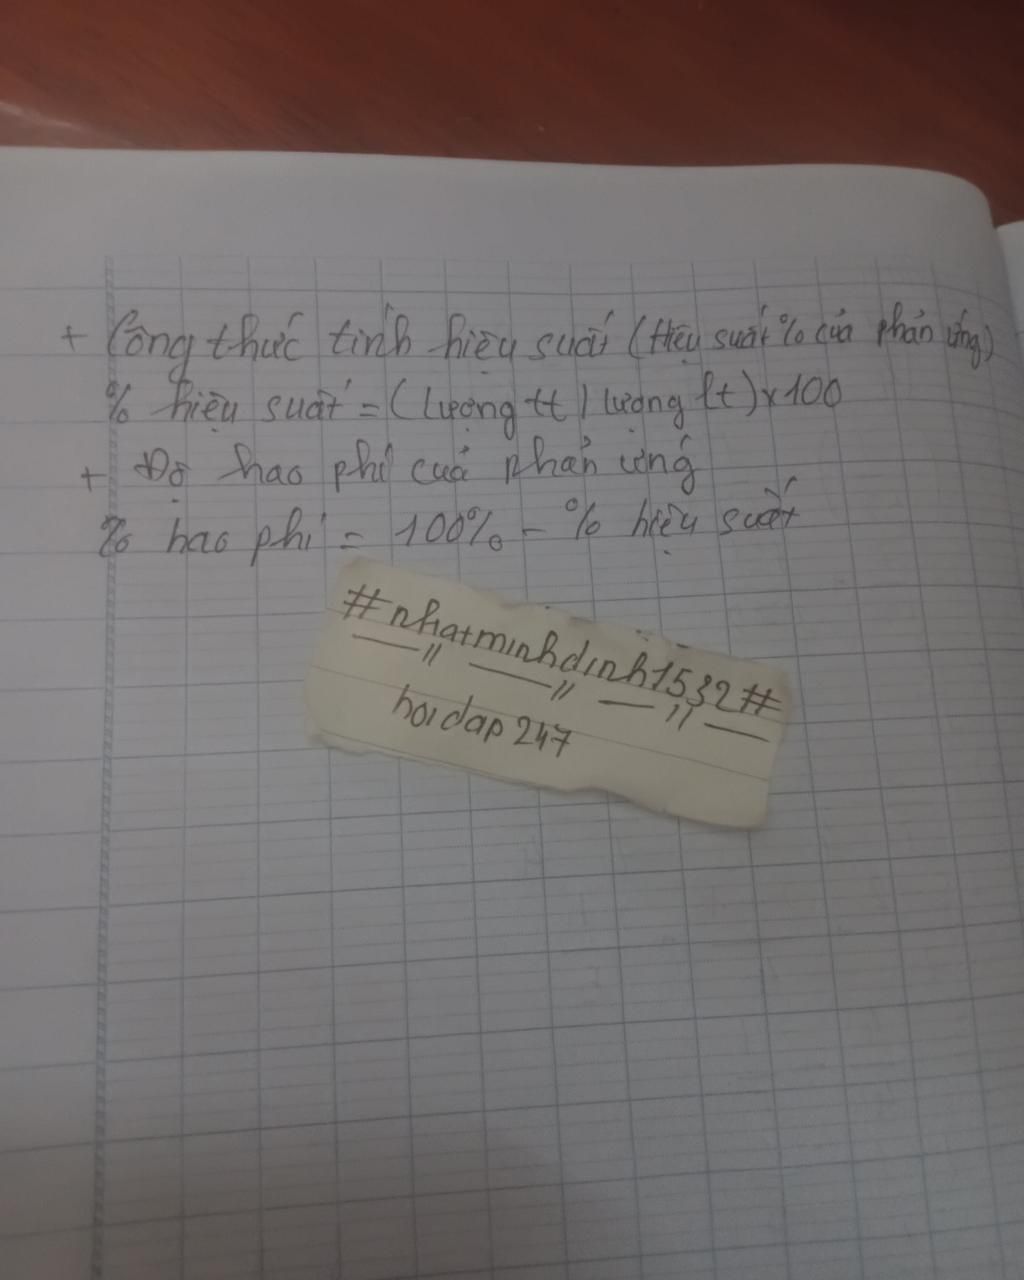 + Công thức tính hiệu suất (Hiệu suất % của phản ứng)
% hiệu suất = (lượng tt / lượng lt) x 100
+ Độ hao phí cuả phản ứng
% hao phí = 100% - % hiệu suất
#nhatminhdinh1532#
hoidap247